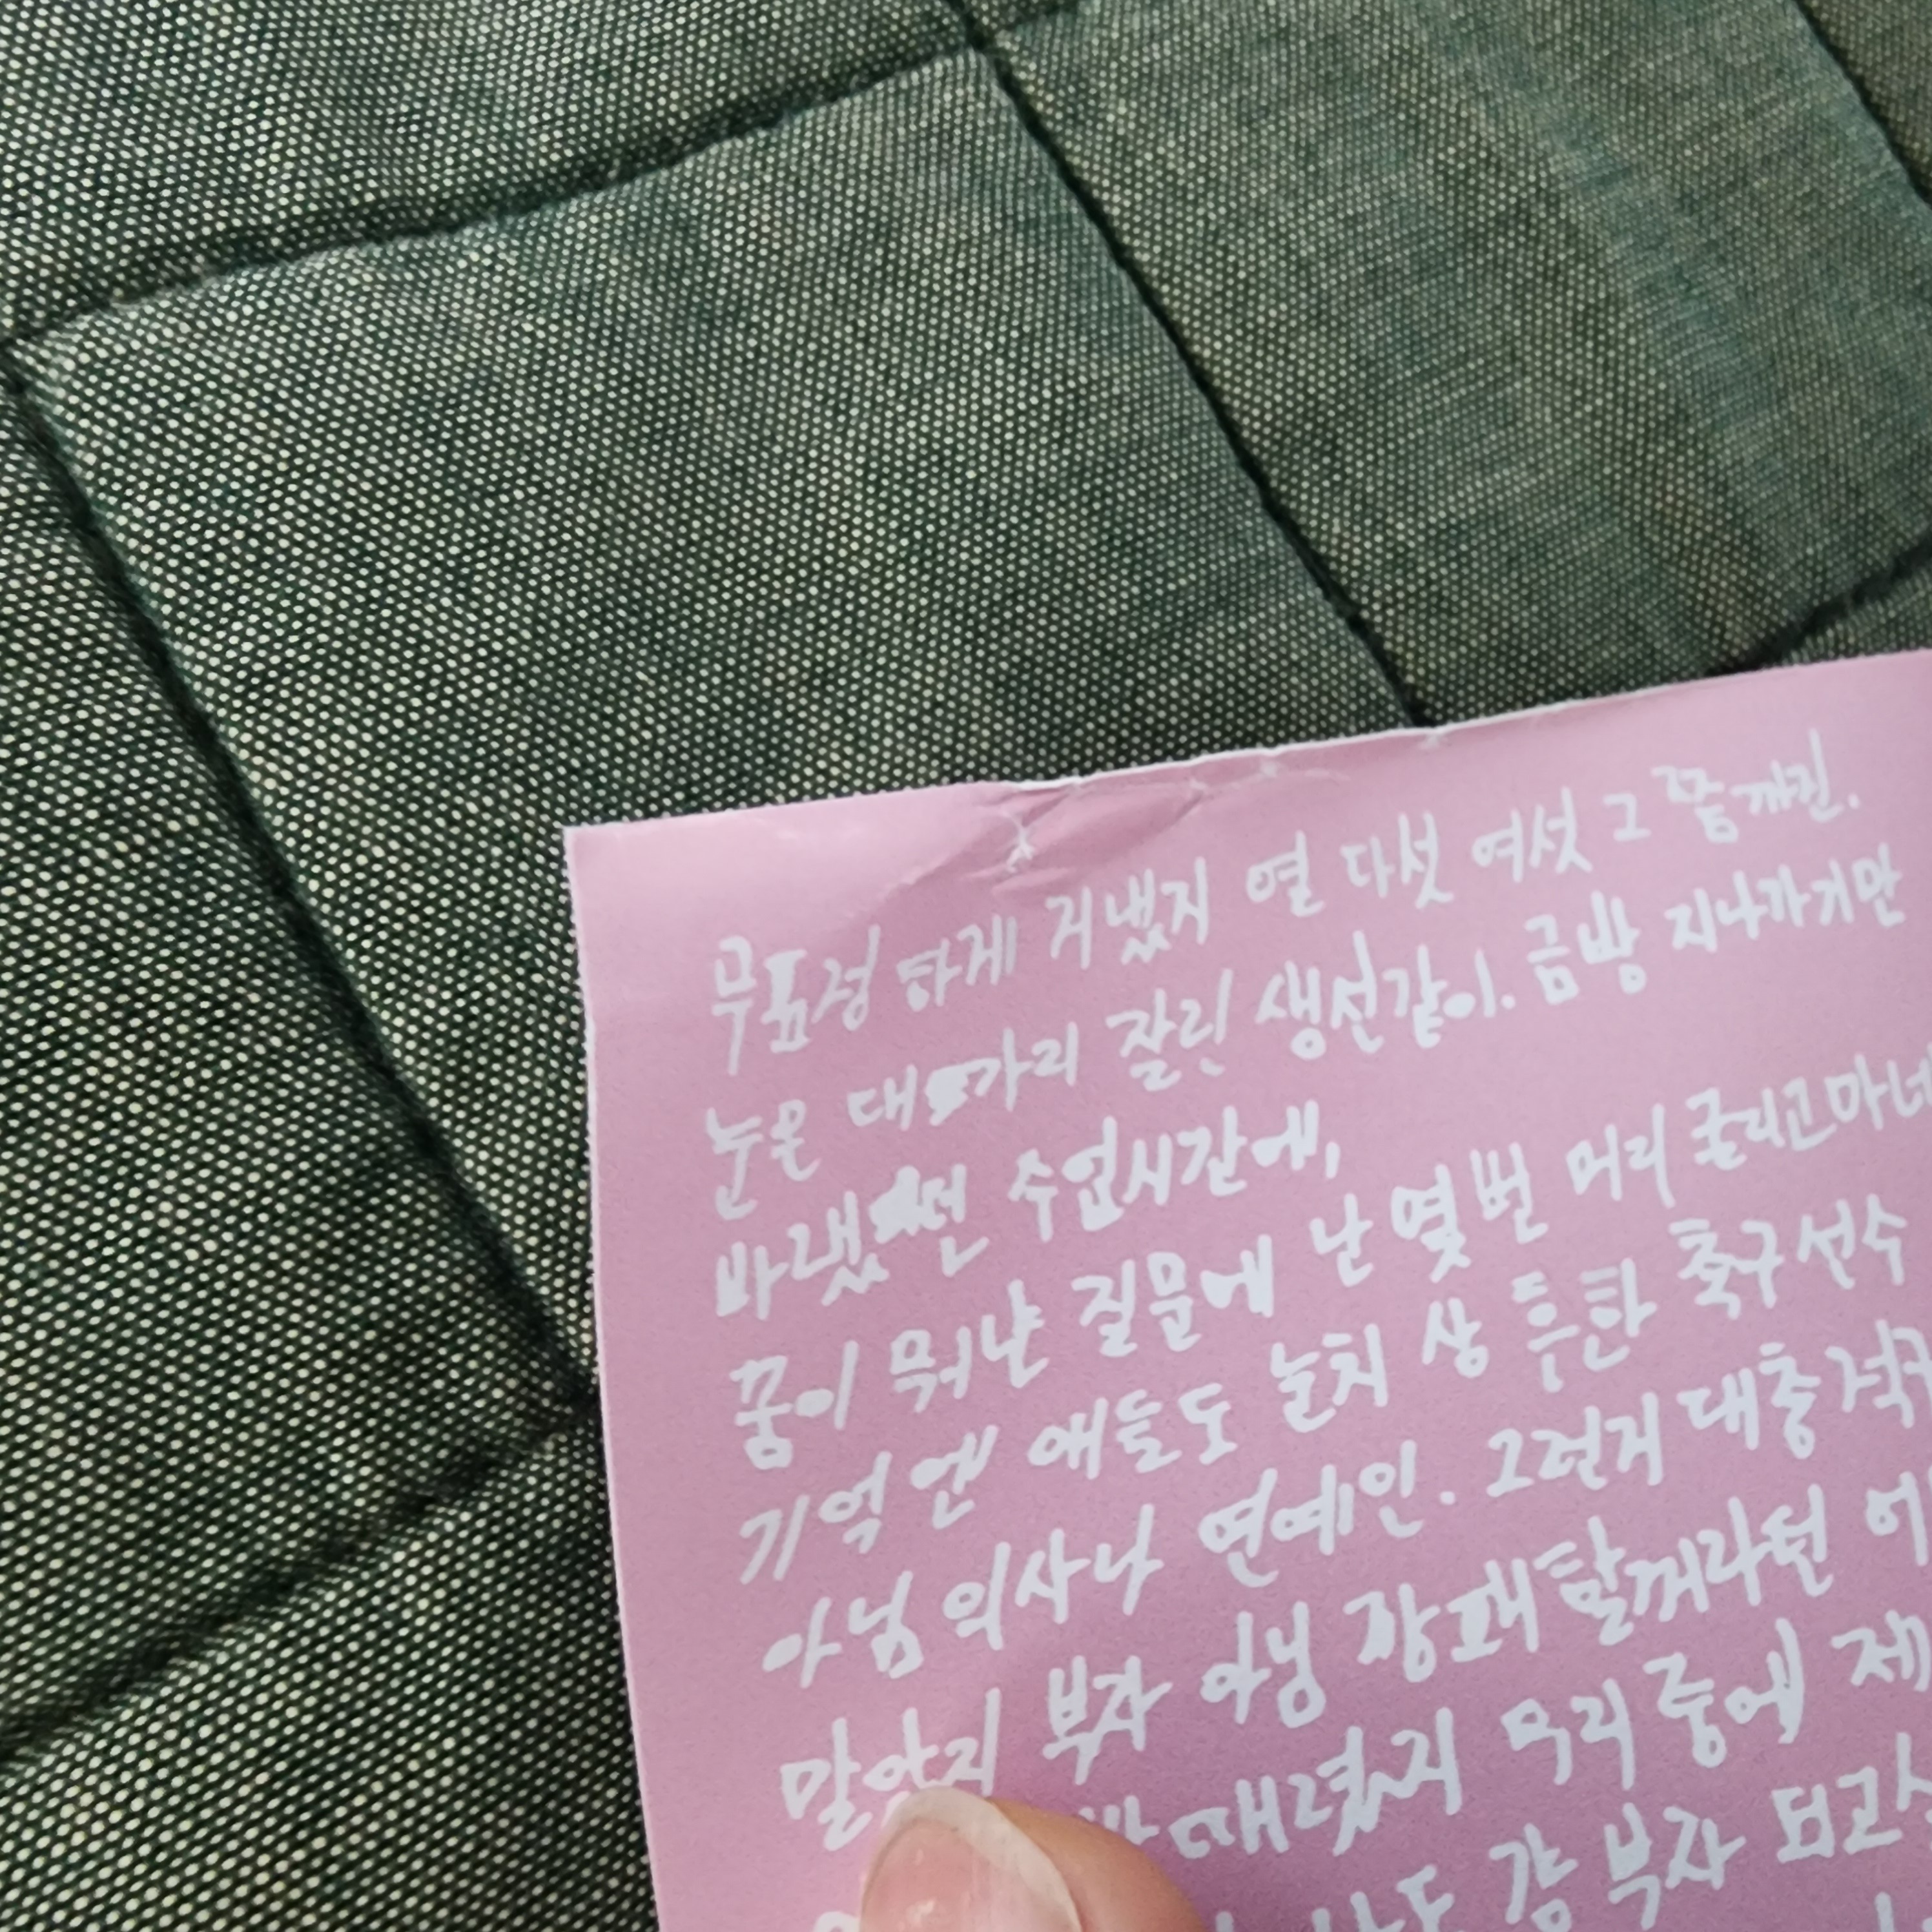 무표정하게 지냈지 열 다섯 여섯 그 쯤까진.
눈은 대가리 잘린 생선같이. 금방 지나가기만
바랬던 수업시간에,
꿈이 뭐냔 질문에 난 몇 번 머리 굴리고마네
기억엔 애들도 눈치 상 흔한 축구선수
아님 의사나 연예인. 그런지 대충 적
말았지 부자 아님 장래
때렸지 우리 중에 제
걍 부자 되고